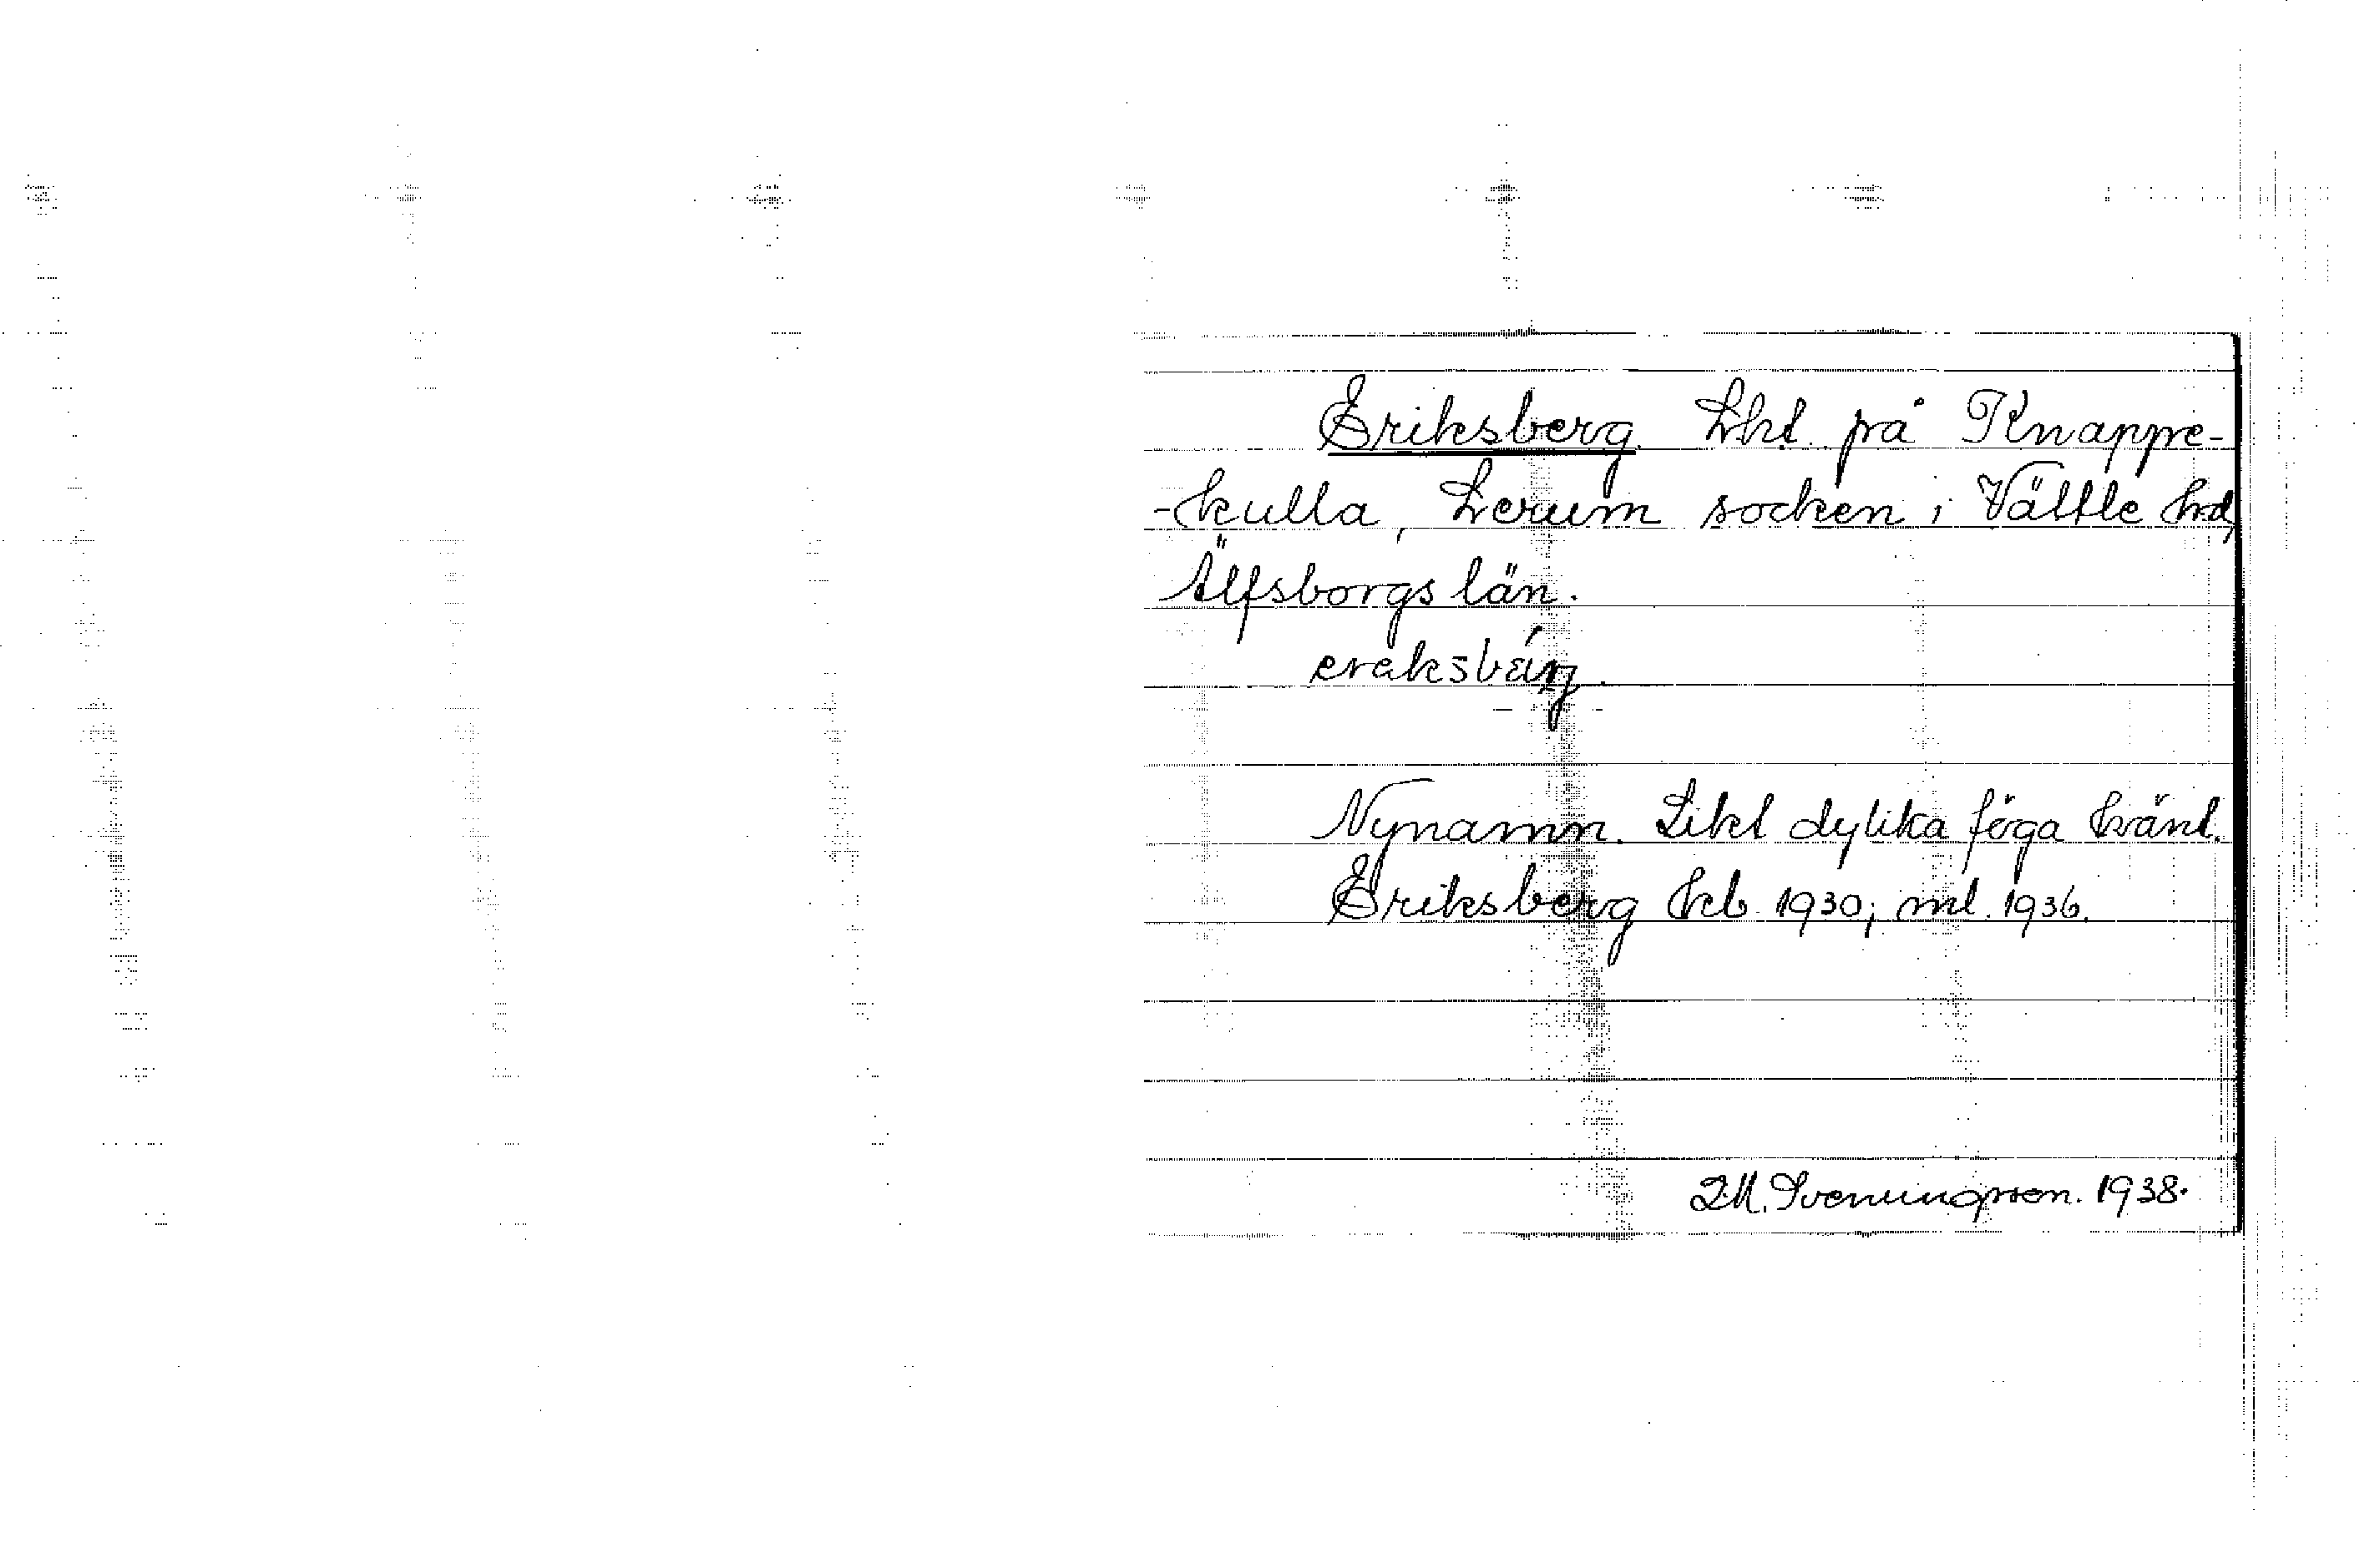 Eriksberg. Lht. på Knappe-
-kulla, Lerum socken i Vättle hd,
Älfsborgs län.
Nynamn. Likt dylika föga känt.
Eriksberg kb 1930; ml. 1936.
J.M. Svenungsson. 1938.